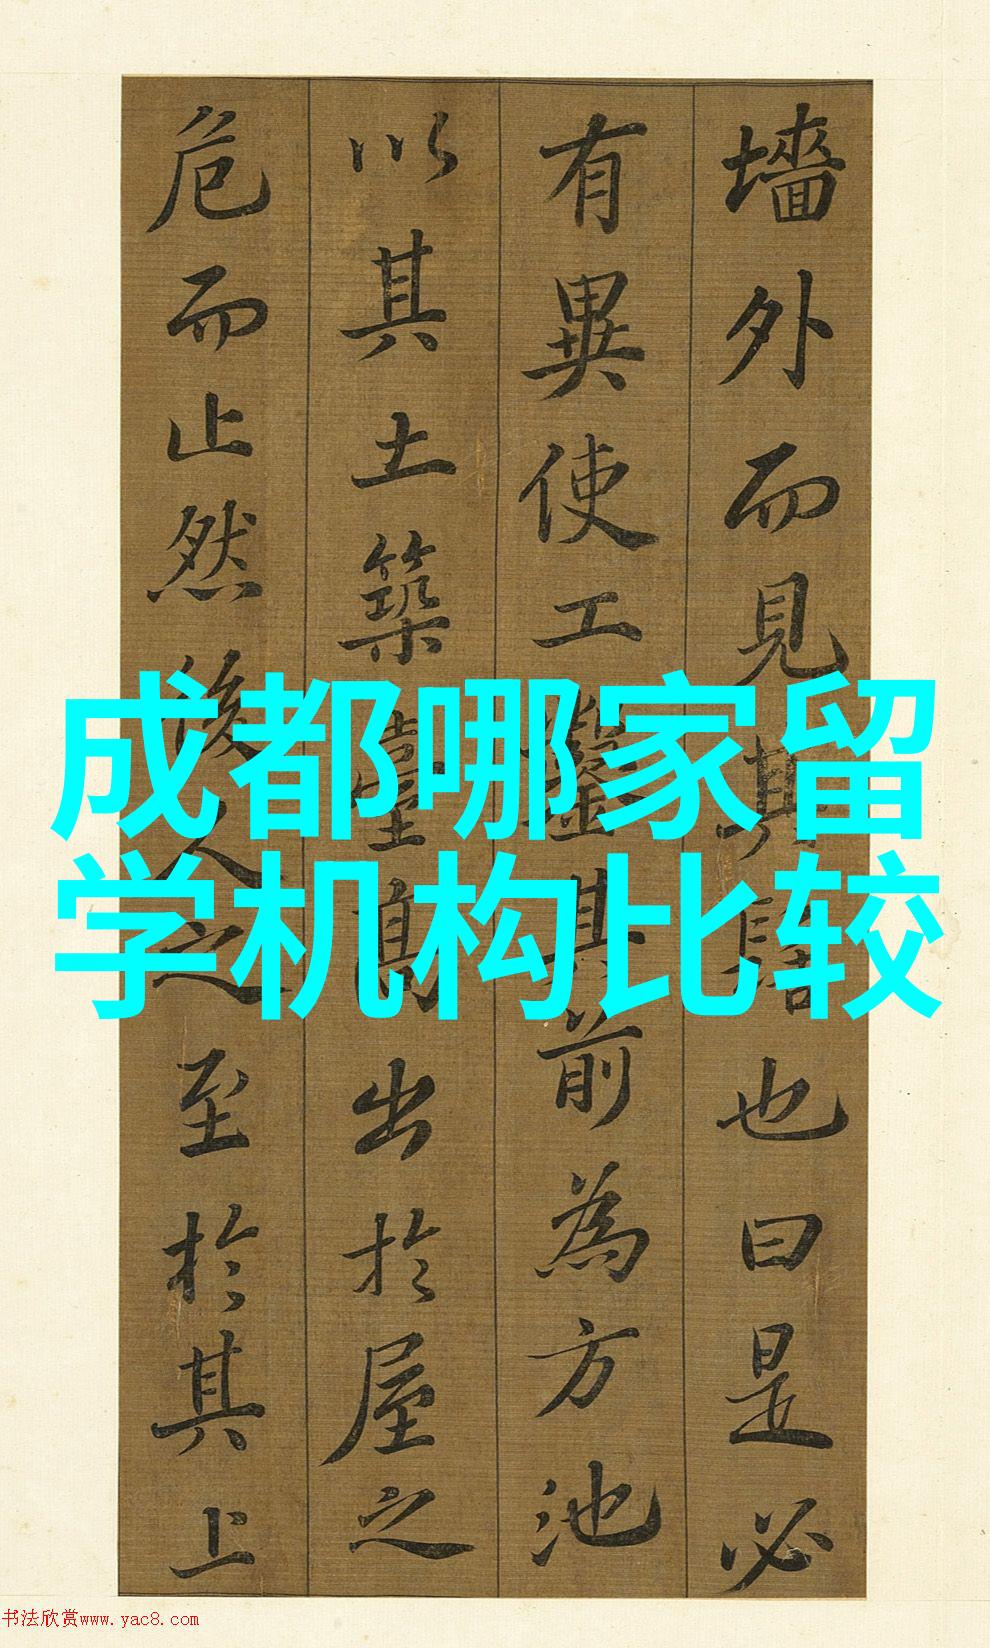 墻外而見其髻也曰是必
有異使工鑿其前為方池
以其土築臺高出於屋之
危而止然後人之至於其上
成都哪家留
学机构比较
书法欣赏www.yac8.com